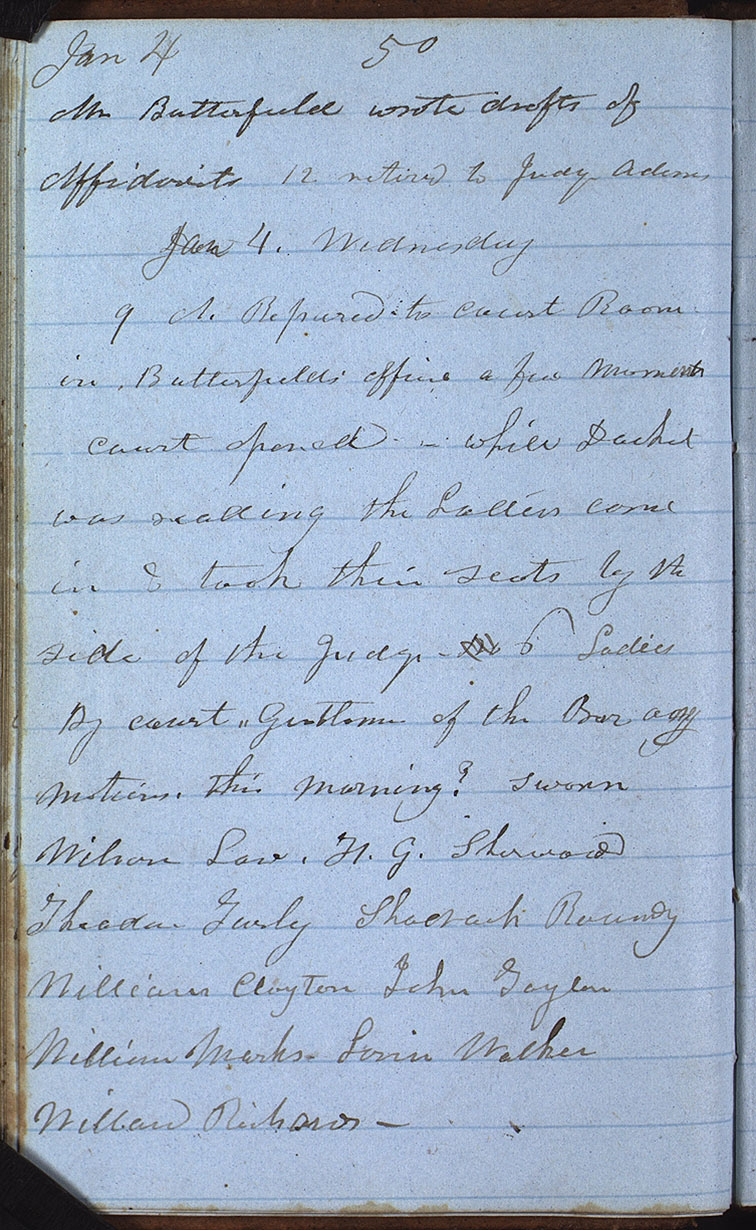 Jan 4 50
Mr Butterfield wrote drafts of
Affidavits 12 retired to Judge Adams
Jan 4. Wednesday
9 A. Repaired to court Room
in Butterfields office a few Moments
court opened - while Docket
was reading the Ladies came
in & took their seats by the
side of the Judge - 6 Ladies
By court "Gentlemen of the Bar any
motions this morning? sworn
Wilson Law. H. G. Sherwood
Theodore Turly Shadrach Roundy
William Clayton John Taylor
William Marks - Lorin Walker
Willard Richards —